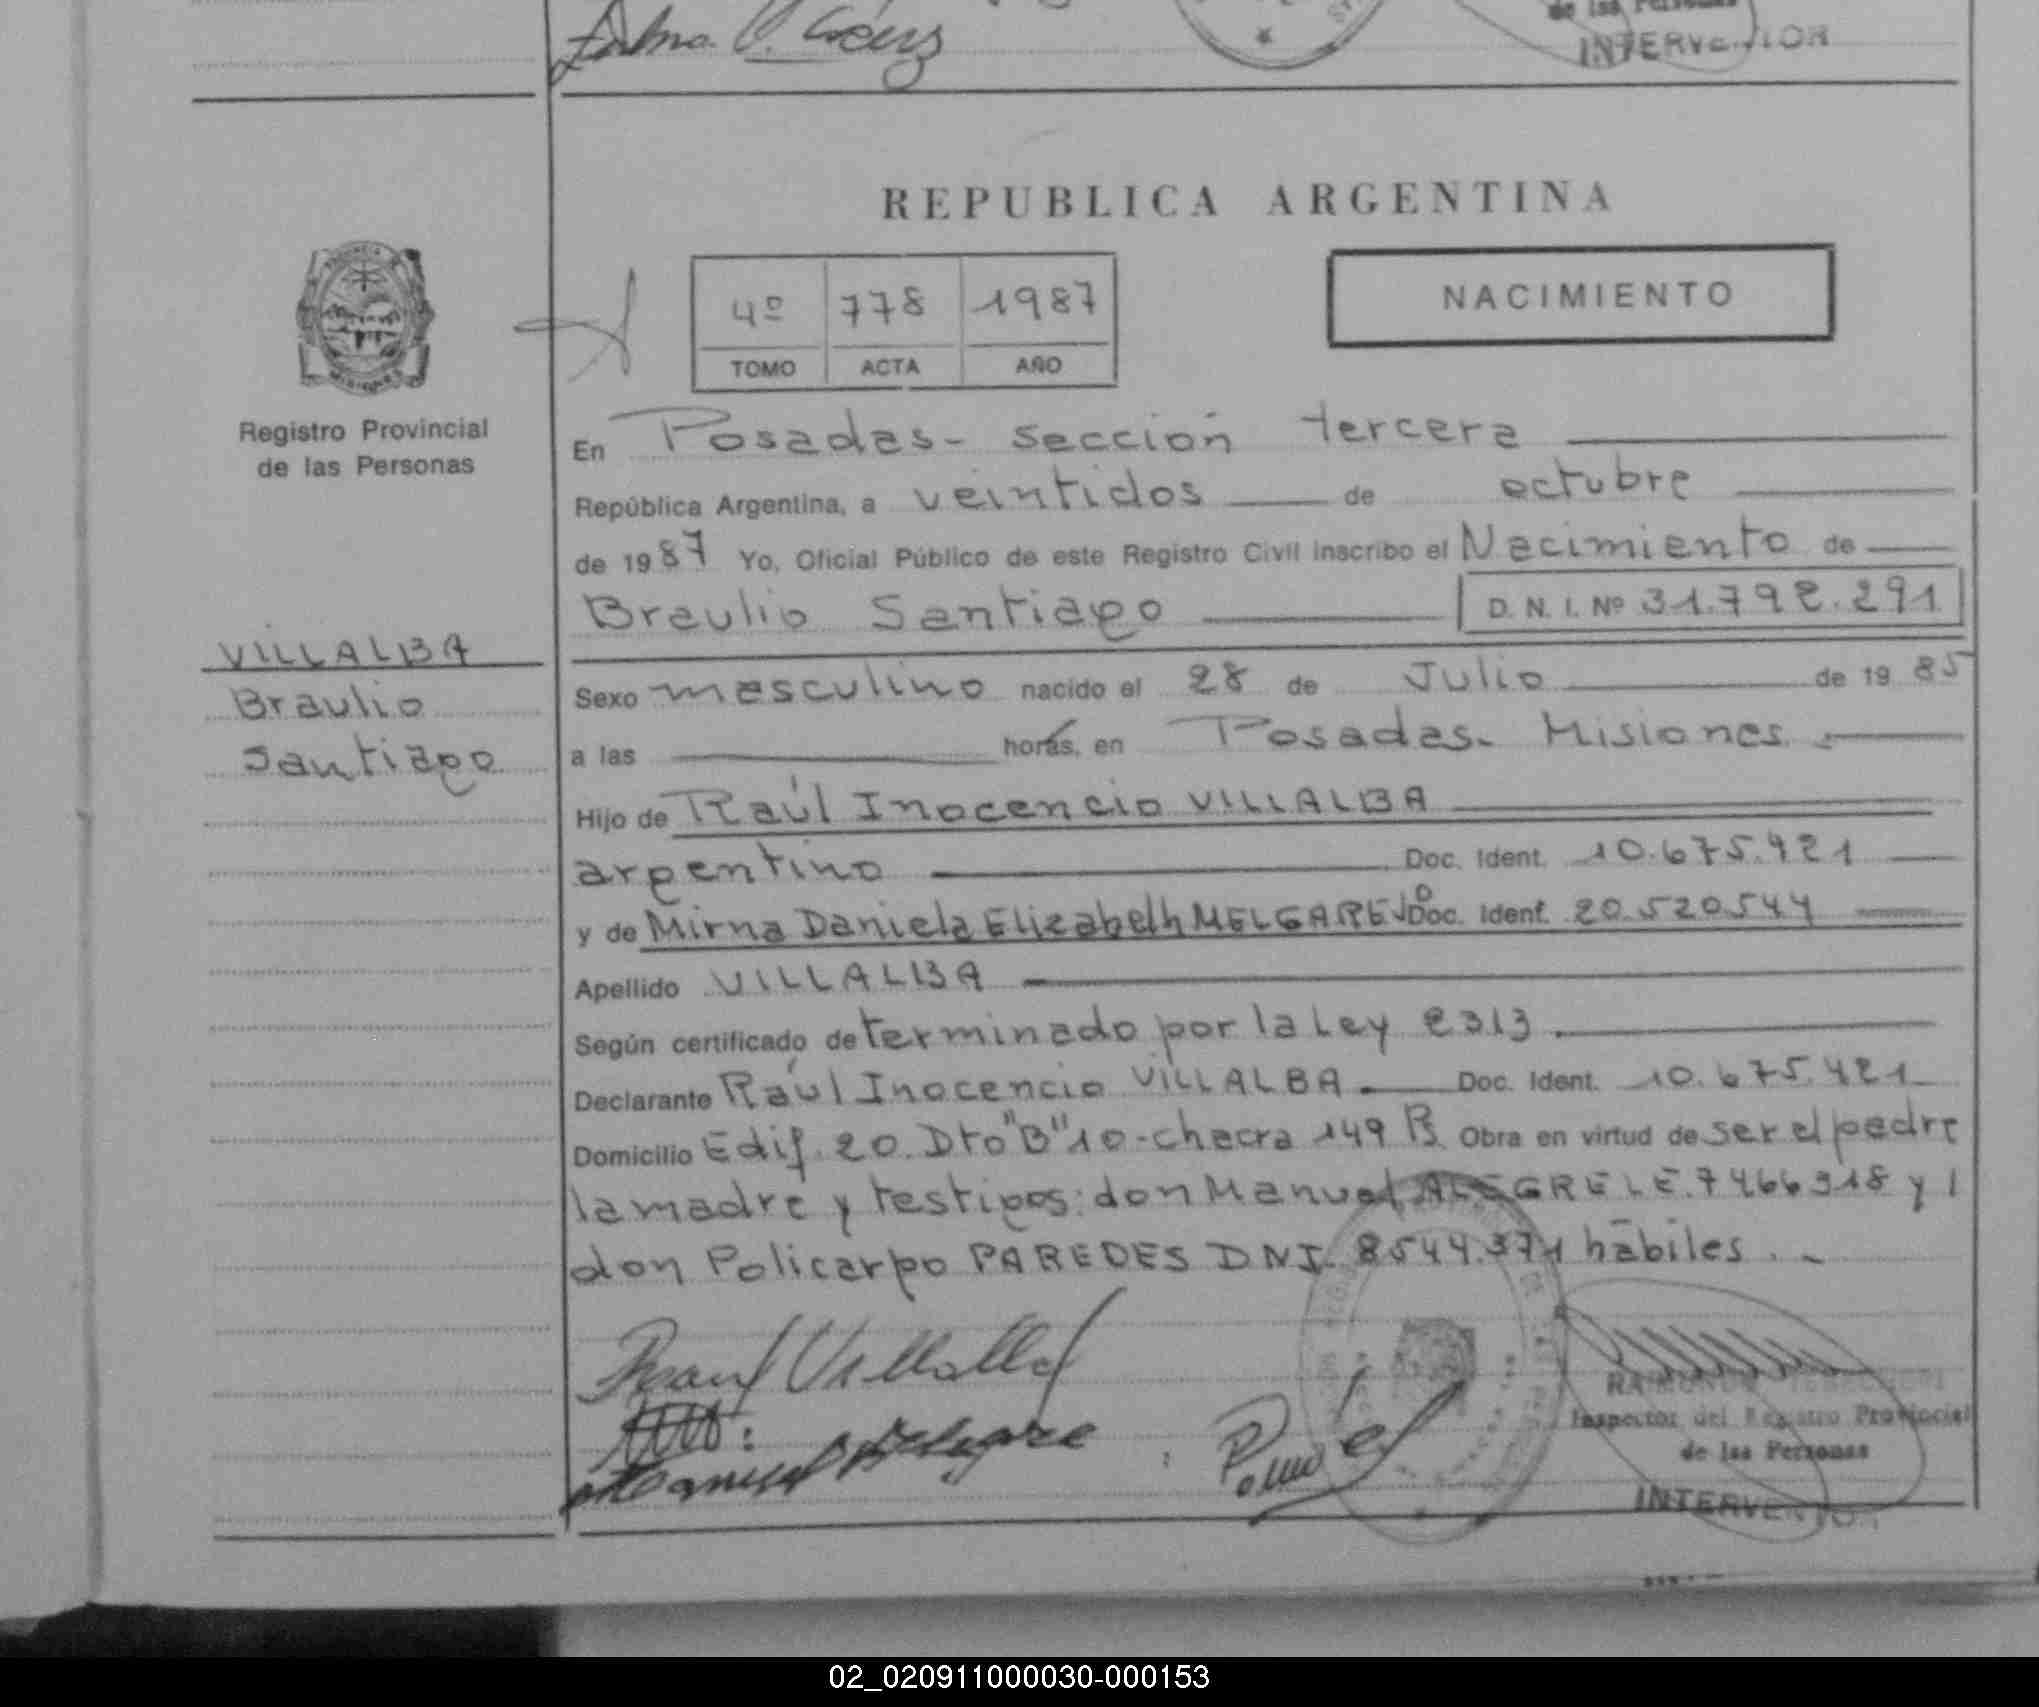 de las Personas
INTERVENTOR
REPUBLICA ARGENTINA
4º 778 1987
TOMO ACTA AÑO
NACIMIENTO
Registro Provincial
de las Personas
VILLALBA
Braulio
Santiago
En Posadas- sección tercera
República Argentina, a veintidos de octubre
de 1987 Yo, Oficial Público de este Registro Civil inscribo el Nacimiento de
Braulio Santiago D. N. I. Nº 31.792.291
Sexo masculino nacido el 28 de Julio de 1985
a las horas, en Posadas- Misiones.
Hijo de Raúl Inocencio VILLALBA
argentino Doc. Ident. 10.675.421
y de Mirna Daniela Elizabelh MELGAREJO Doc. Ident. 20.520544
Apellido VILLALBA
Según certificado determinado por la Ley 2313.
Declarante Raúl Inocencio VILLALBA. Doc. Ident. 10.675.421
Domicilio Edif. 20. Dto "B" 10-chacra 149 Ps. Obra en virtud de ser el padre
la madre y testigos: don Manuel ALEGRE L.E. 7466318 y
don Policarpo PAREDES DNI. 8544.371 hábiles.
Raul Villalba
Manuel Alegre
Inspector del Registro Provincial
de las Personas
INTERVENTOR
02_020911000030-000153